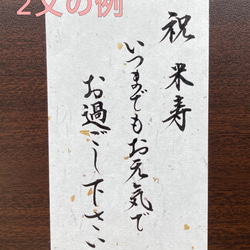 2文の例
祝 米寿
いつまでもお元気で
お過ごし下さい